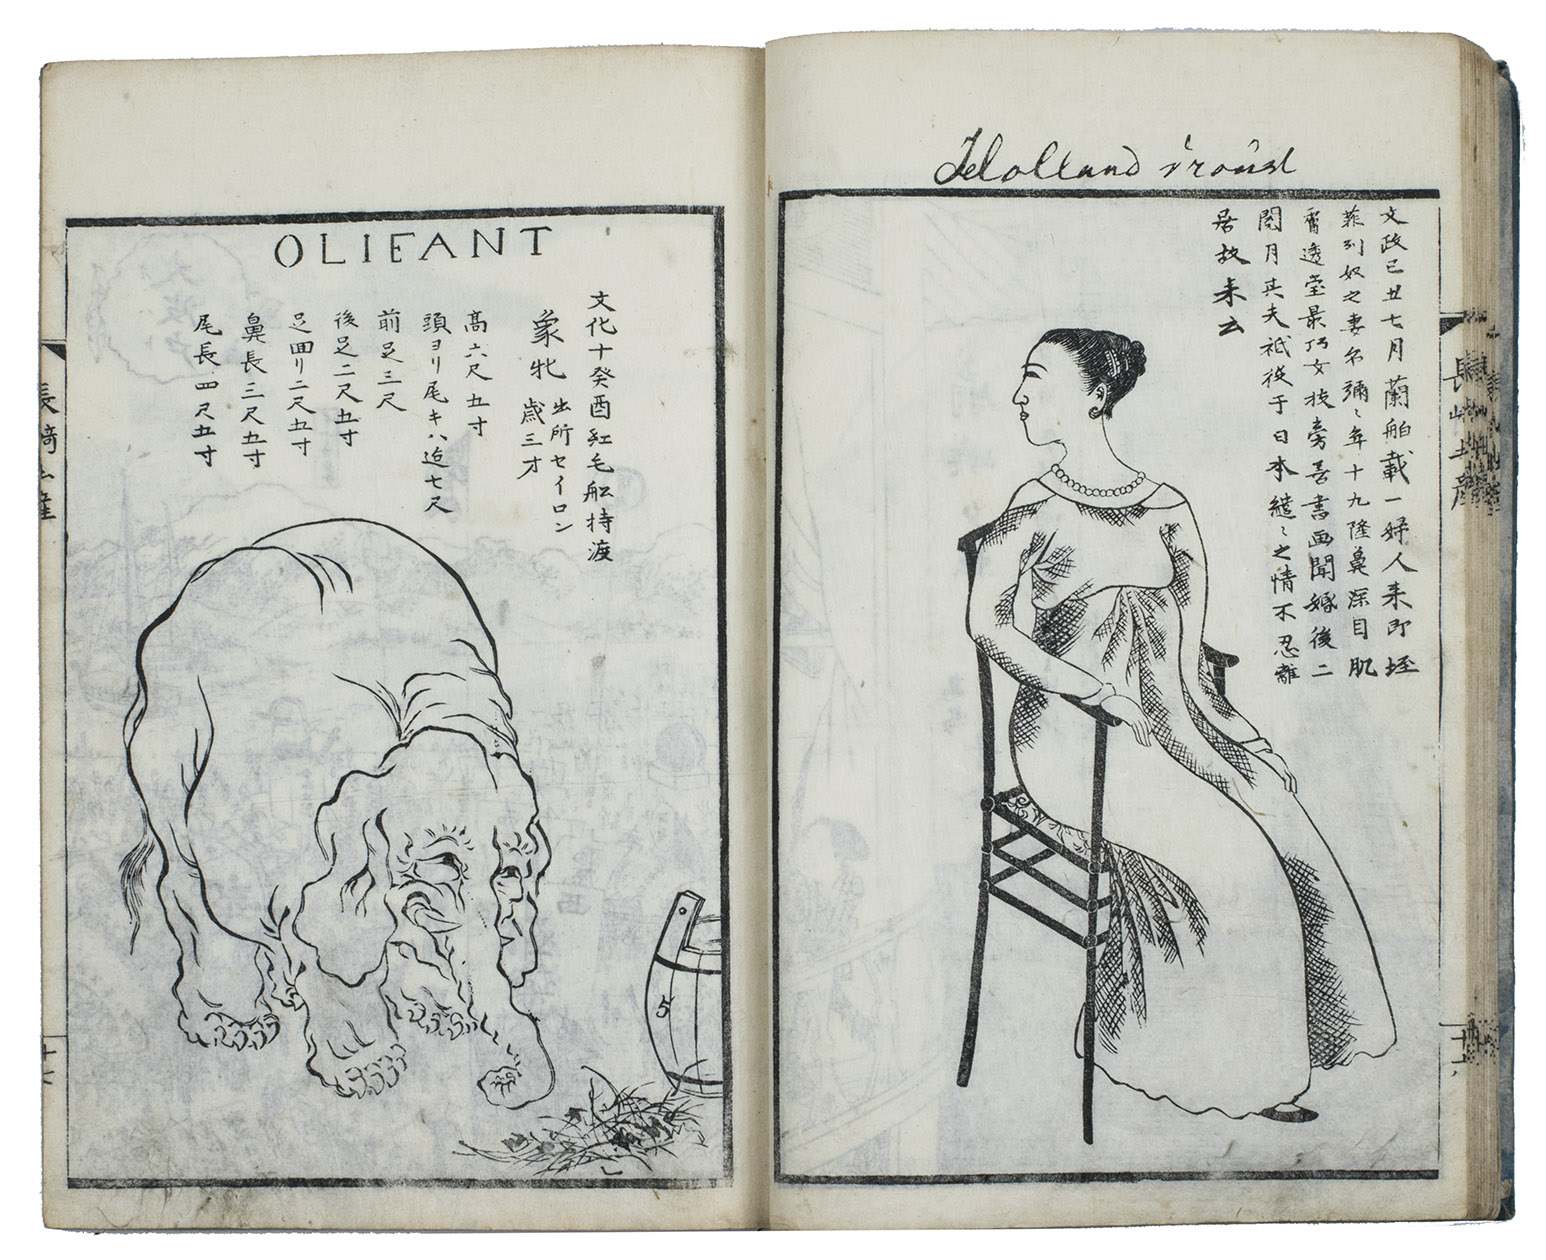 Holland vrouw
文政己丑七月蘭舶載一婦人来即垤
菲列奴之妻名彌〻年十九隆鼻深目肌
膚透瑩最巧女技旁善書画聞婚後二
閲月其夫祗役于日本繾〻之情不忍離
居故来云
OLIFANT
文化十癸酉紅毛舩持渡
象牝 歳三才
出所セイロン
高六尺五寸
頭ヨリ尾キハ迄七尺
前足三尺
後足二尺五寸
足囬リ二尺五寸
鼻長三尺五寸
尾長四尺五寸
5
長崎土産
長崎土産